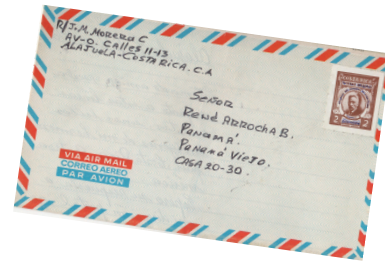 R/J.M. Morera C
AV-O. Calles 11-13
ALAJUELA-COSTA RICA. C.A
Señor
René ARROCHA B.
Panamá.
Panamá Viejo.
CASA 20-30.
VIA AIR MAIL
CORREO AEREO
PAR AVION
2
2